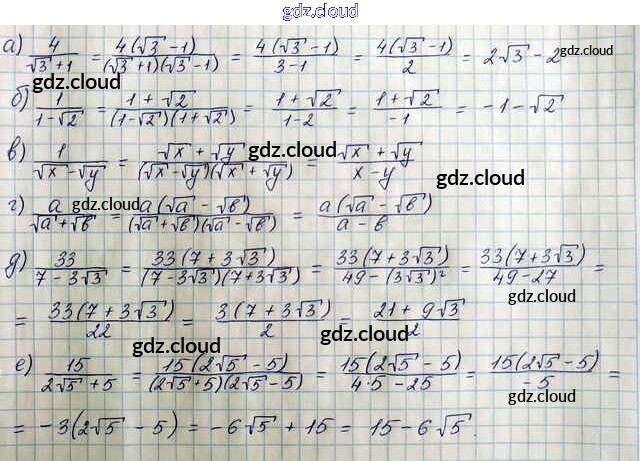 gdz.cloud
а) 4/(√3+1) = 4(√3-1)/((√3+1)(√3-1)) = 4(√3-1)/(3-1) = 4(√3-1)/2 = 2√3-2 gdz.cloud
gdz.cloud
б) 1/(1-√2) = (1+√2)/((1-√2)(1+√2)) = (1+√2)/(1-2) = (1+√2)/(-1) = -1-√2
gdz.cloud
в) 1/(√x-√y) = (√x+√y)/((√x-√y)(√x+√y)) = (√x+√y)/(x-y)
gdz.cloud
gdz.cloud
г) a/(√a+√b) = a(√a-√b)/((√a+√b)(√a-√b)) = a(√a-√b)/(a-b)
д) 33/(7-3√3) = 33(7+3√3)/((7-3√3)(7+3√3)) = 33(7+3√3)/(49-(3√3)²) = 33(7+3√3)/(49-27) =
gdz.cloud
= 33(7+3√3)/22 = 3(7+3√3)/2 = (21+9√3)/2
gdz.cloud
gdz.cloud
е) 15/(2√5+5) = 15(2√5-5)/((2√5+5)(2√5-5)) = 15(2√5-5)/(4·5-25) = 15(2√5-5)/(-5) =
gdz.cloud
= -3(2√5-5) = -6√5+15 = 15-6√5.
gdz.cloud